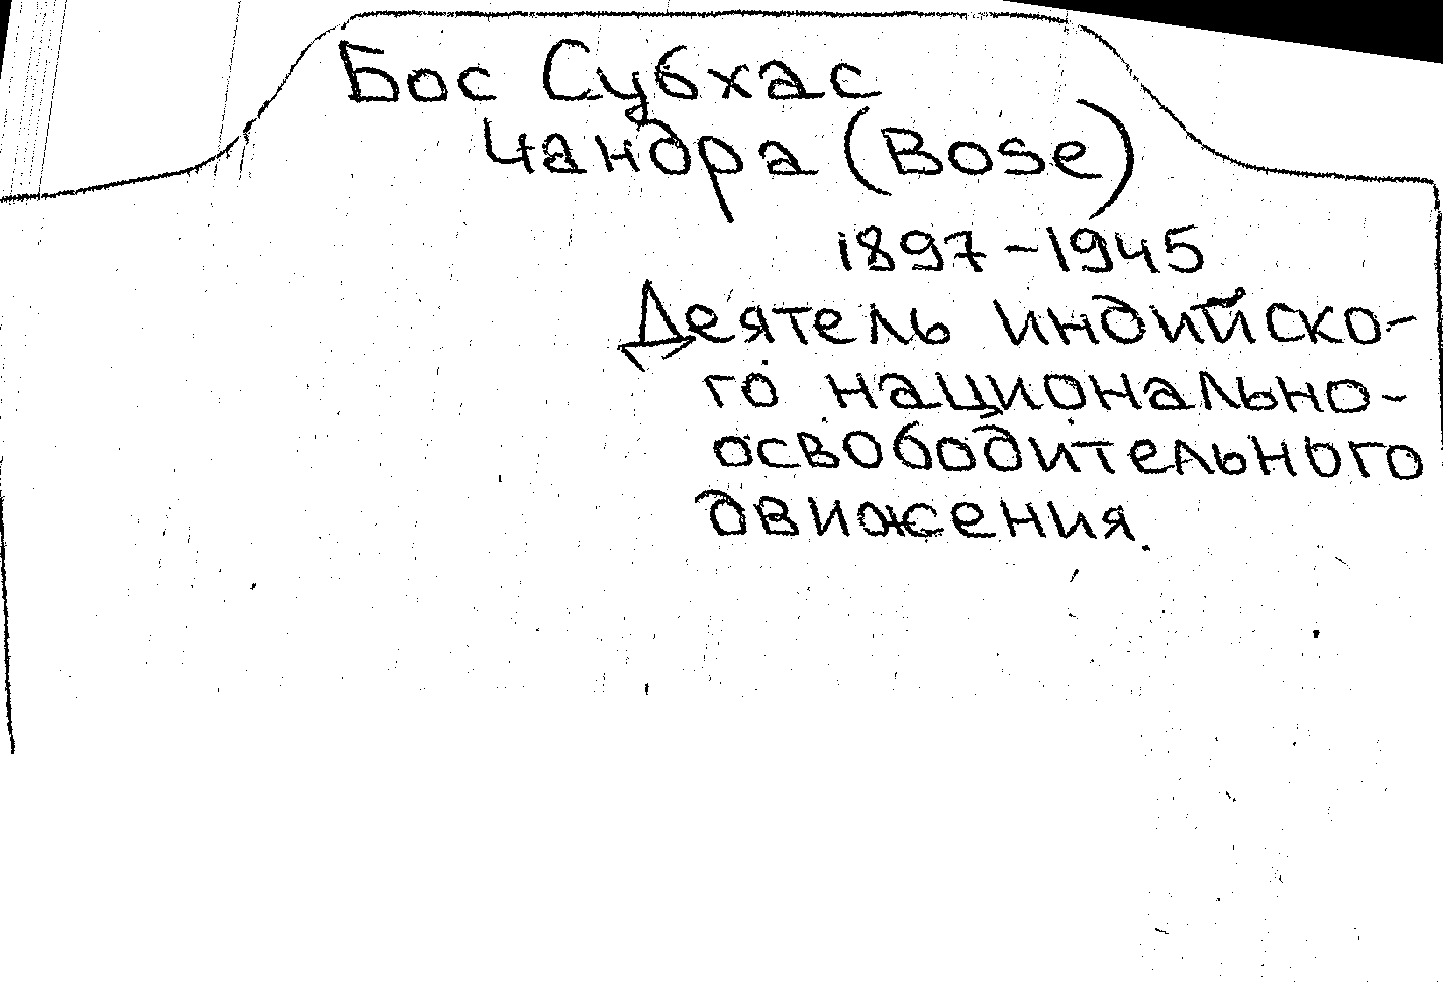 Бос Субхас
Чандра (Bose)
1897-1945
Деятель индийско-
го национально-
освободительного
движения.